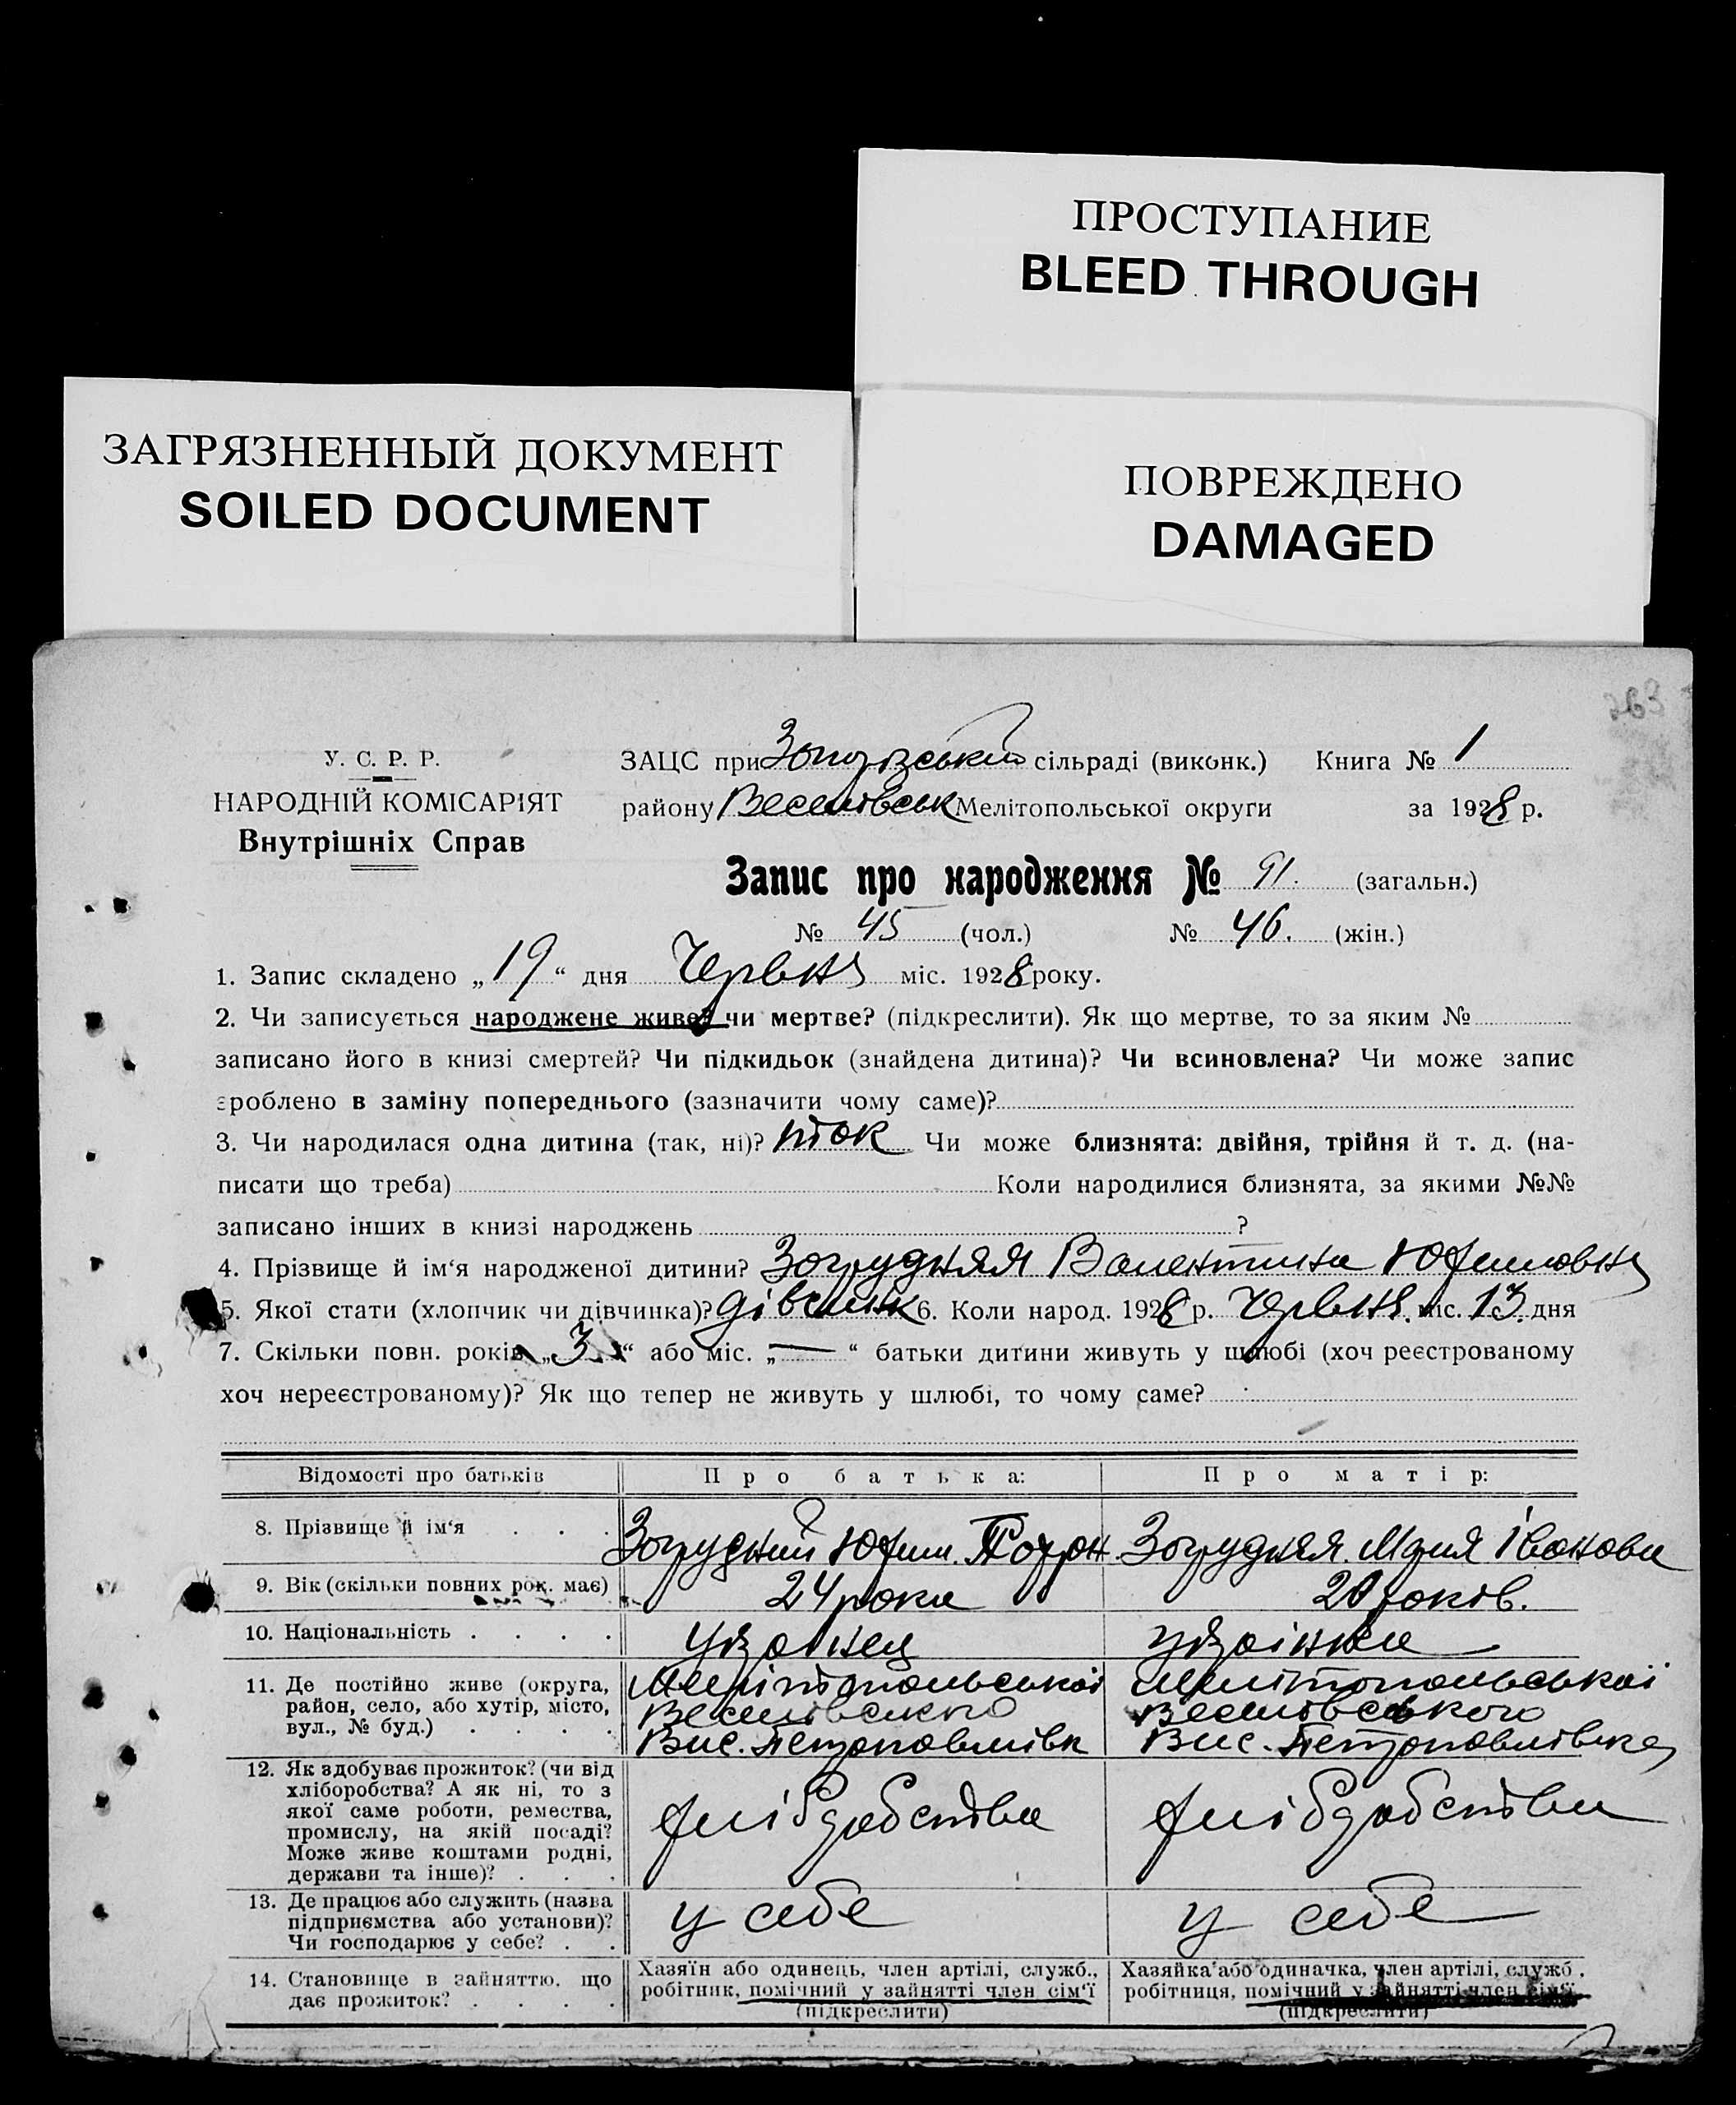 ПРОСТУПАНИЕ
BLEED THROUGH
ЗАГРЯЗНЕННЫЙ ДОКУМЕНТ
SOILED DOCUMENT
ПОВРЕЖДЕНО
DAMAGED
У. С. Р. Р.
НАРОДНІЙ КОМІСАРІЯТ
Внутрішніх Справ
ЗАЦС при сільраді (виконк.) Книга № 1
району Веселівськ Мелітопольської округи за 1928 р.
Запис про народження № 91. (загальн.)
№ 45 (чол.) № 46. (жін.)
1. Запис складено „19“ дня Червня міс. 1928 року.
2. Чи записується народжене живе? чи мертве? (підкреслити). Як що мертве, то за яким №
записано його в книзі смертей? Чи підкидьок (знайдена дитина)? Чи всиновлена? Чи може запис
зроблено в заміну попереднього (зазначити чому саме)?
3. Чи народилася одна дитина (так, ні)? так Чи може близнята: двійня, трійня й т. д. (на-
писати що треба) Коли народилися близнята, за якими №№
записано інших в книзі народжень ?
4. Прізвище й ім‘я народженої дитини? Загрудняя Валентина Юхимовна
5. Якої стати (хлопчик чи дівчинка)? 6. Коли народ. 1928 р. Червня. міс. 13 дня
7. Скільки повн. років „3“ або міс. „—“ батьки дитини живуть у шлюбі (хоч реєстрованому
хоч нереєстрованому)? Як що тепер не живуть у шлюбі, то чому саме?
Відомості про батьків Про батька: Про матір:
8. Прізвище й ім‘я Загрудний Юхим. Загрудняя. Мария Іванова
9. Вік (скільки повних рок. має) 24 роки 20 років.
10. Національність украинец украінка
11. Де постійно живе (округа, район, село, або хутір, місто, вул., № буд.) Мелітопольськоі Мелитопольськоі
Веселівського Веселовського
Вис. Петропавлівк Вис. Петропавлівка
12. Як здобуває прожиток? (чи від хліборобства? А як ні, то з якої саме роботи, ремества, промислу, на якій посаді? Може живе коштами родні, держави та інше)? хлібробства хлібробства
13. Де працює або служить (назва підприємства або установи)? Чи господарює у себе? у себе у себе
14. Становище в зайняттю, що дає прожиток? Хазяїн або одинець, член артілі, служб., робітник, помічний у зайнятті член сім‘ї (підкреслити) Хазяйка або одиначка, член артілі, служб., робітниця, помічний у зайнятті член сім‘ї (підкреслити)